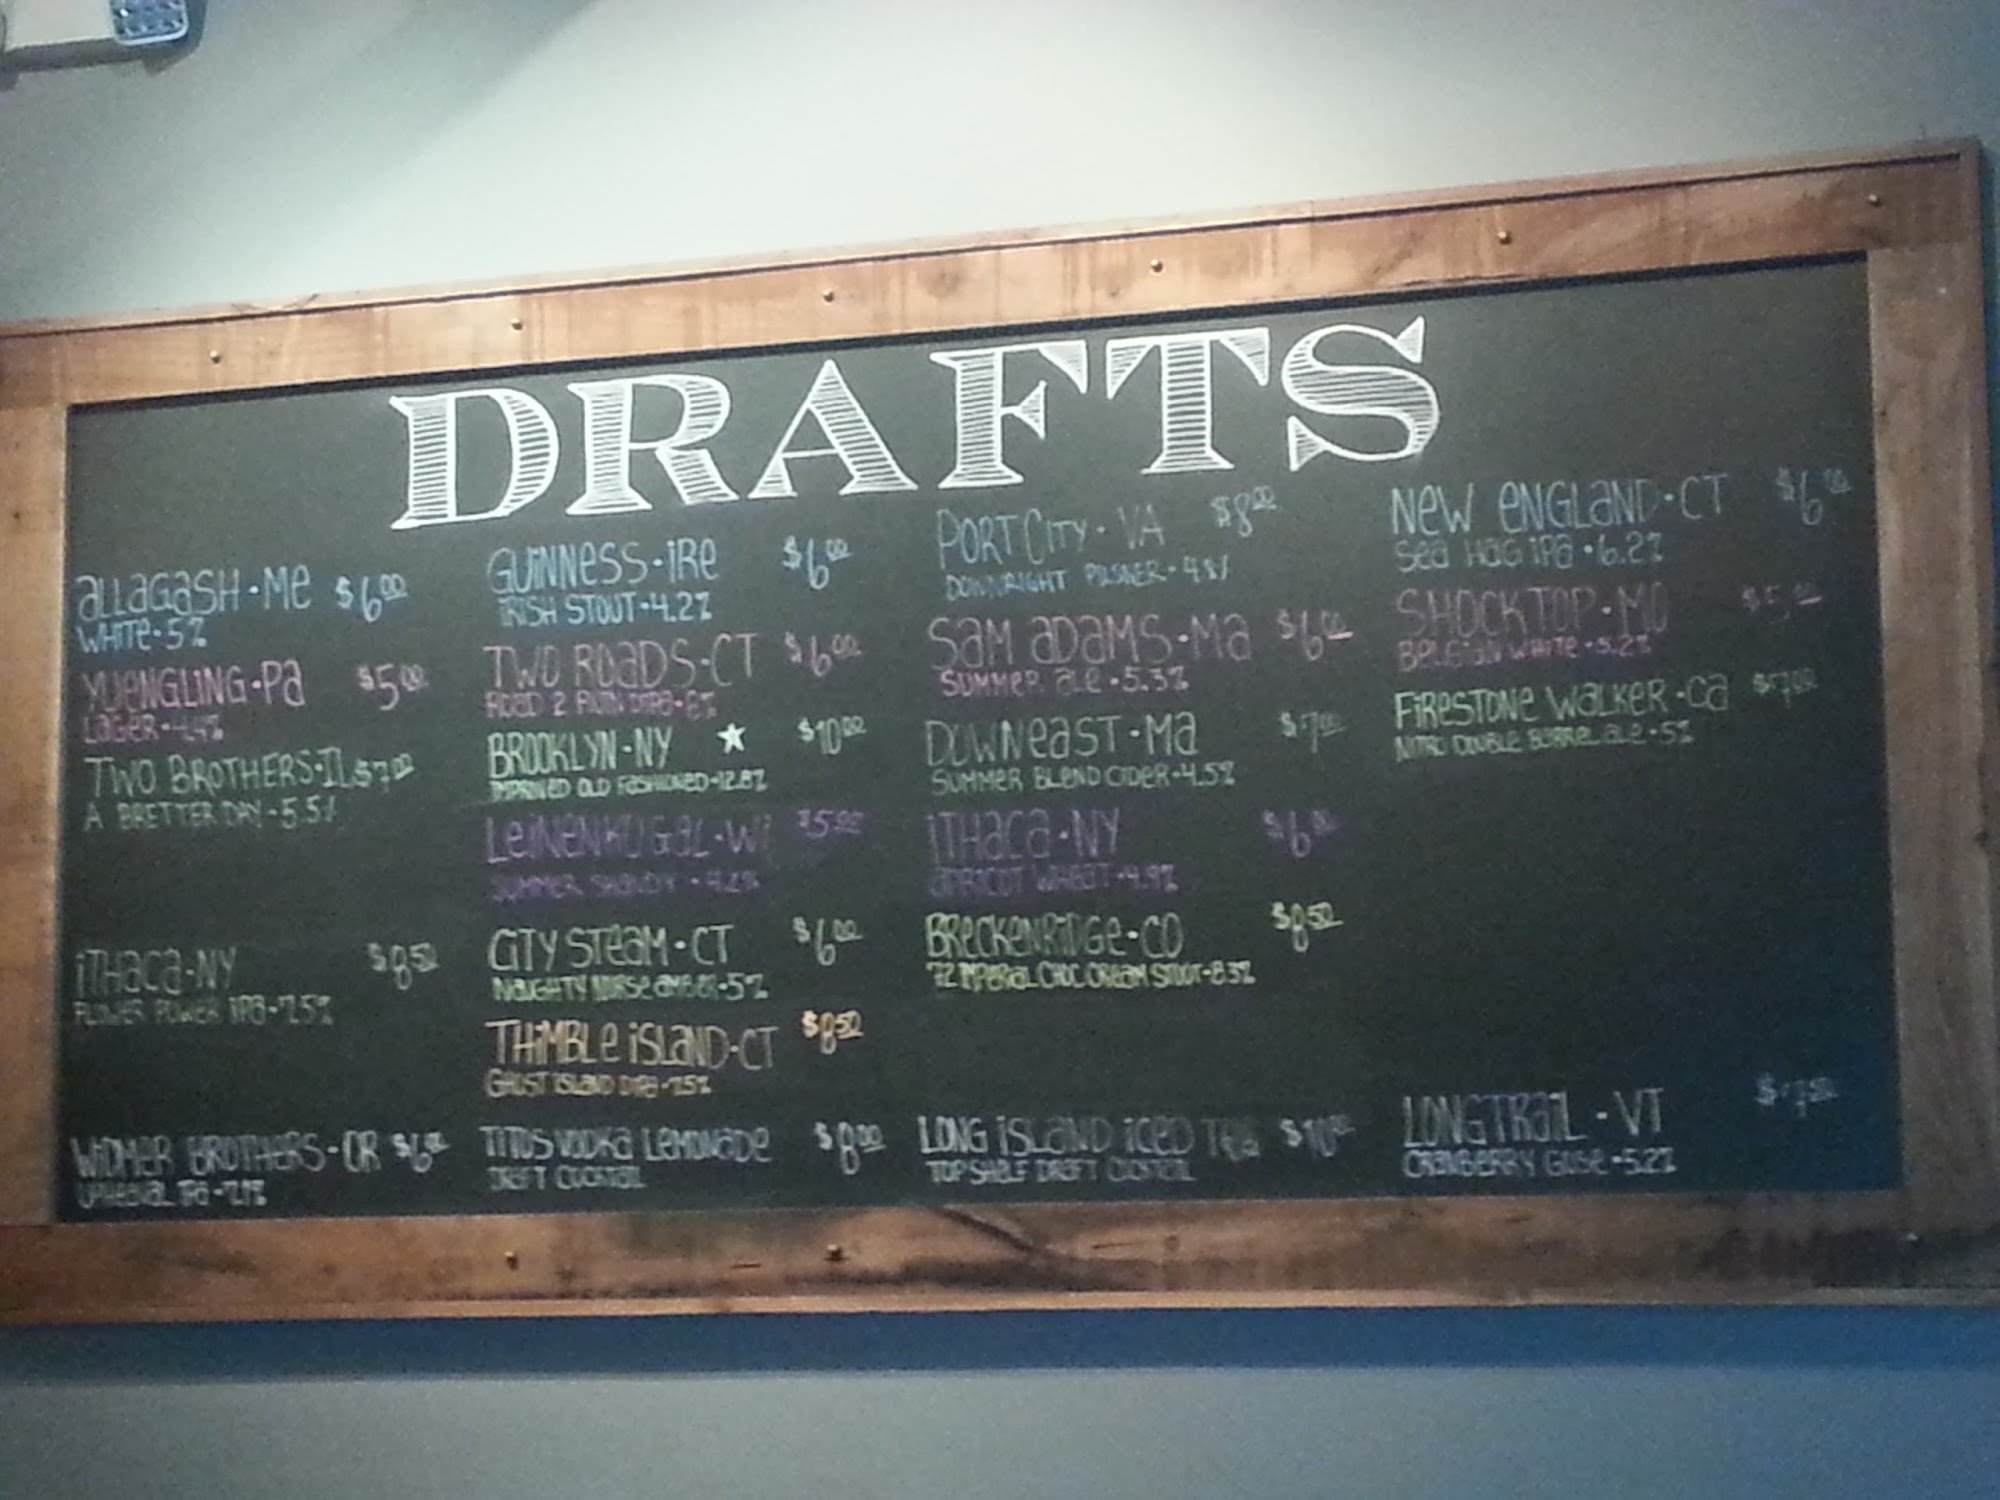 DRAFTS
ALLAGASH • ME $6.00
WHITE • 5%
YUENGLING • PA $5.00
LAGER • 4.4%
TWO BROTHERS • IL $7.00
A BRETTER DAY • 5.5%
ITHACA • NY $8.50
FLOWER POWER IPA • 7.5%
WIDMER BROTHERS • OR $6.00
UPHEAVAL IPA •
GUINNESS • IRE $6.00
IRISH STOUT • 4.2%
TWO ROADS • CT $6.00
ROAD 2 RUIN DIPA • 8%
BROOKLYN • NY ★ $10.00
IMPROVED OLD FASHIONED • 12.8%
LEINENKUGAL • WI $5.00
SUMMER SHANDY • 4.2%
CITY STEAM • CT $6.00
NAUGHTY NURSE AMBER • 5%
THIMBLE ISLAND • CT $8.50
GHOST ISLAND DIPA • 7.5%
TITOS VODKA LEMONADE $8.00
DRAFT COCKTAIL
PORT CITY • VA $8.00
DOWNRIGHT PILSNER • 4.8%
SAM ADAMS • MA $6.00
SUMMER ALE • 5.3%
DOWNEAST • MA $7.00
SUMMER BLEND CIDER • 4.5%
ITHACA • NY $6.00
APRICOT WHEAT • 4.9%
BRECKENRIDGE • CO $8.50
72 IMPERIAL CHOC CREAM STOUT • 8.3%
LONG ISLAND ICED TEA $10.00
TOP SHELF DRAFT COCKTAIL
NEW ENGLAND • CT $6.00
SEA HAG IPA • 6.2%
SHOCKTOP • MO $5.00
BELGIAN WHITE • 5.2%
FIRESTONE WALKER • CA $7.00
NITRO DOUBLE BARREL ALE • 5%
LONGTRAIL • VT
CRANBERRY GOSE • 5.2%